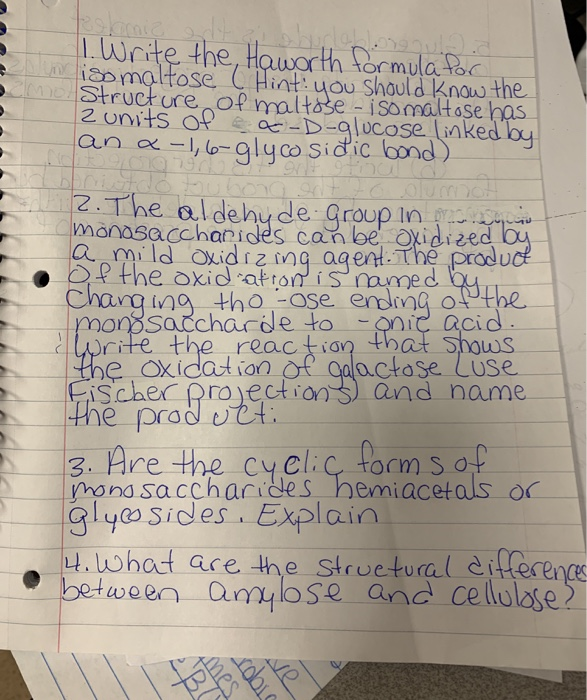 1. Write the Haworth formula for
isomaltose (Hint: you should know the
structure of maltose - isomaltose has
2 units of α-D-glucose linked by
an α-1,6-glycosidic bond)
2. The aldehyde group in
monosaccharides can be oxidized by
a mild oxidizing agent. The product
of the oxidation is named by
changing tho -ose ending of the
monosaccharde to -onic acid.
Write the reaction that shows
the oxidation of galactose (use
Fischer projections) and name
the product.
3. Are the cyclic forms of
monosaccharides hemiacetals or
glycosides. Explain
4. What are the structural differences
between amylose and cellulose?